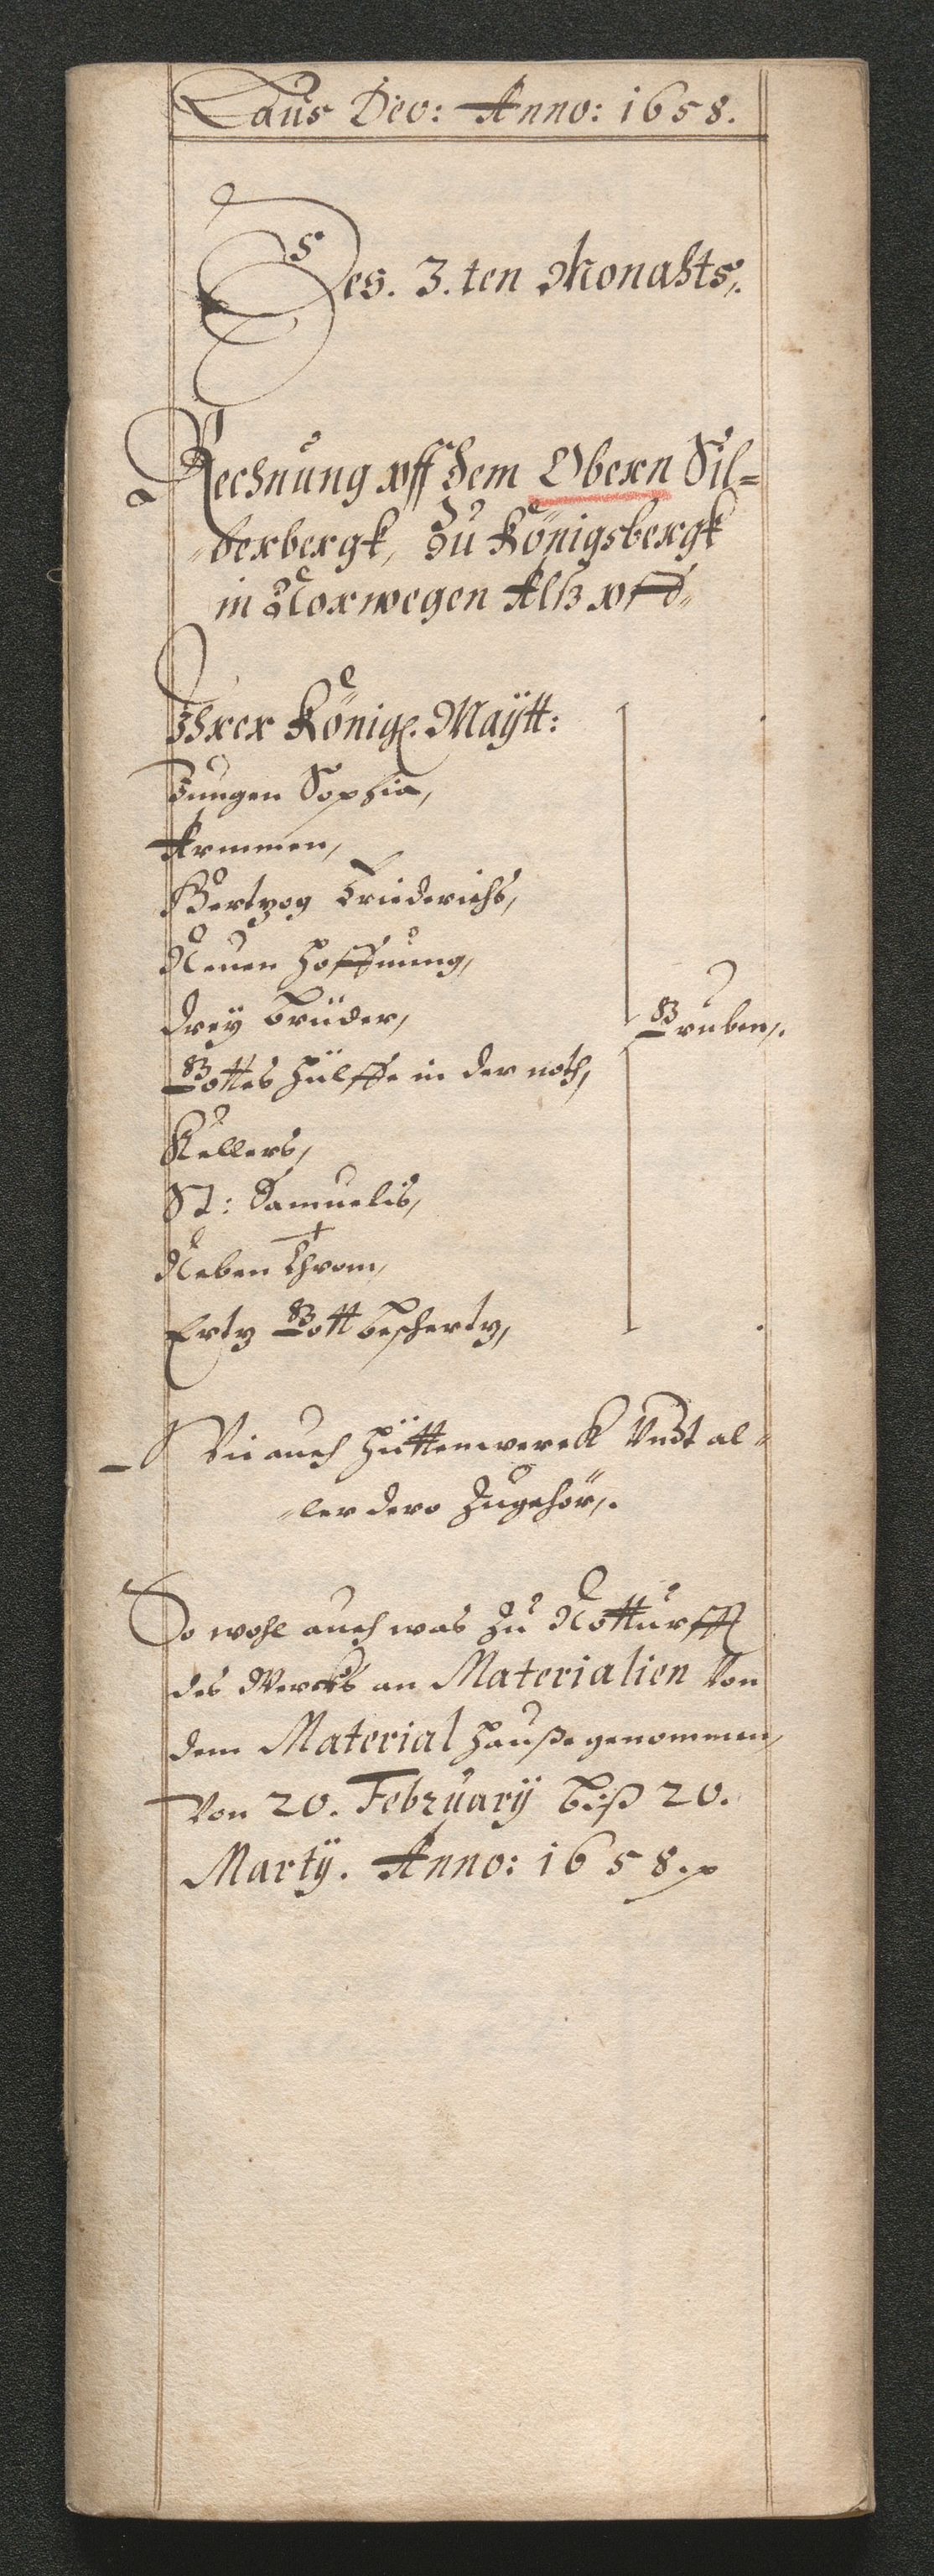 Laus Deo: Anno: 1658.
Des. 3.ten Monahts,.
Rechnung vff dem Obern Sil=
berbergk, Zu Königsbergk
in Norwegen Alß vff
Ihrer Königl. Maÿtt:
Jungen Sophia,
Armmen,
Hertzog Friederichs,
Neuen Hoffnung,
dreÿ Brüder,
Gruben,.
Gottes Hülffe in der noth,
Kellers,
St: Samuelis,
Neben Throm,
Ertz Gott bescherts,
Wie auch Hüttenwerck Vndt al=
=ler dero Zugehör,.
So wohl auch was Zu Notturfft
des Wercks an Materialien Von
dem Material Hauße genommen,
Von 20. Februarÿ biß 20.
Martÿ. Anno: 1658.